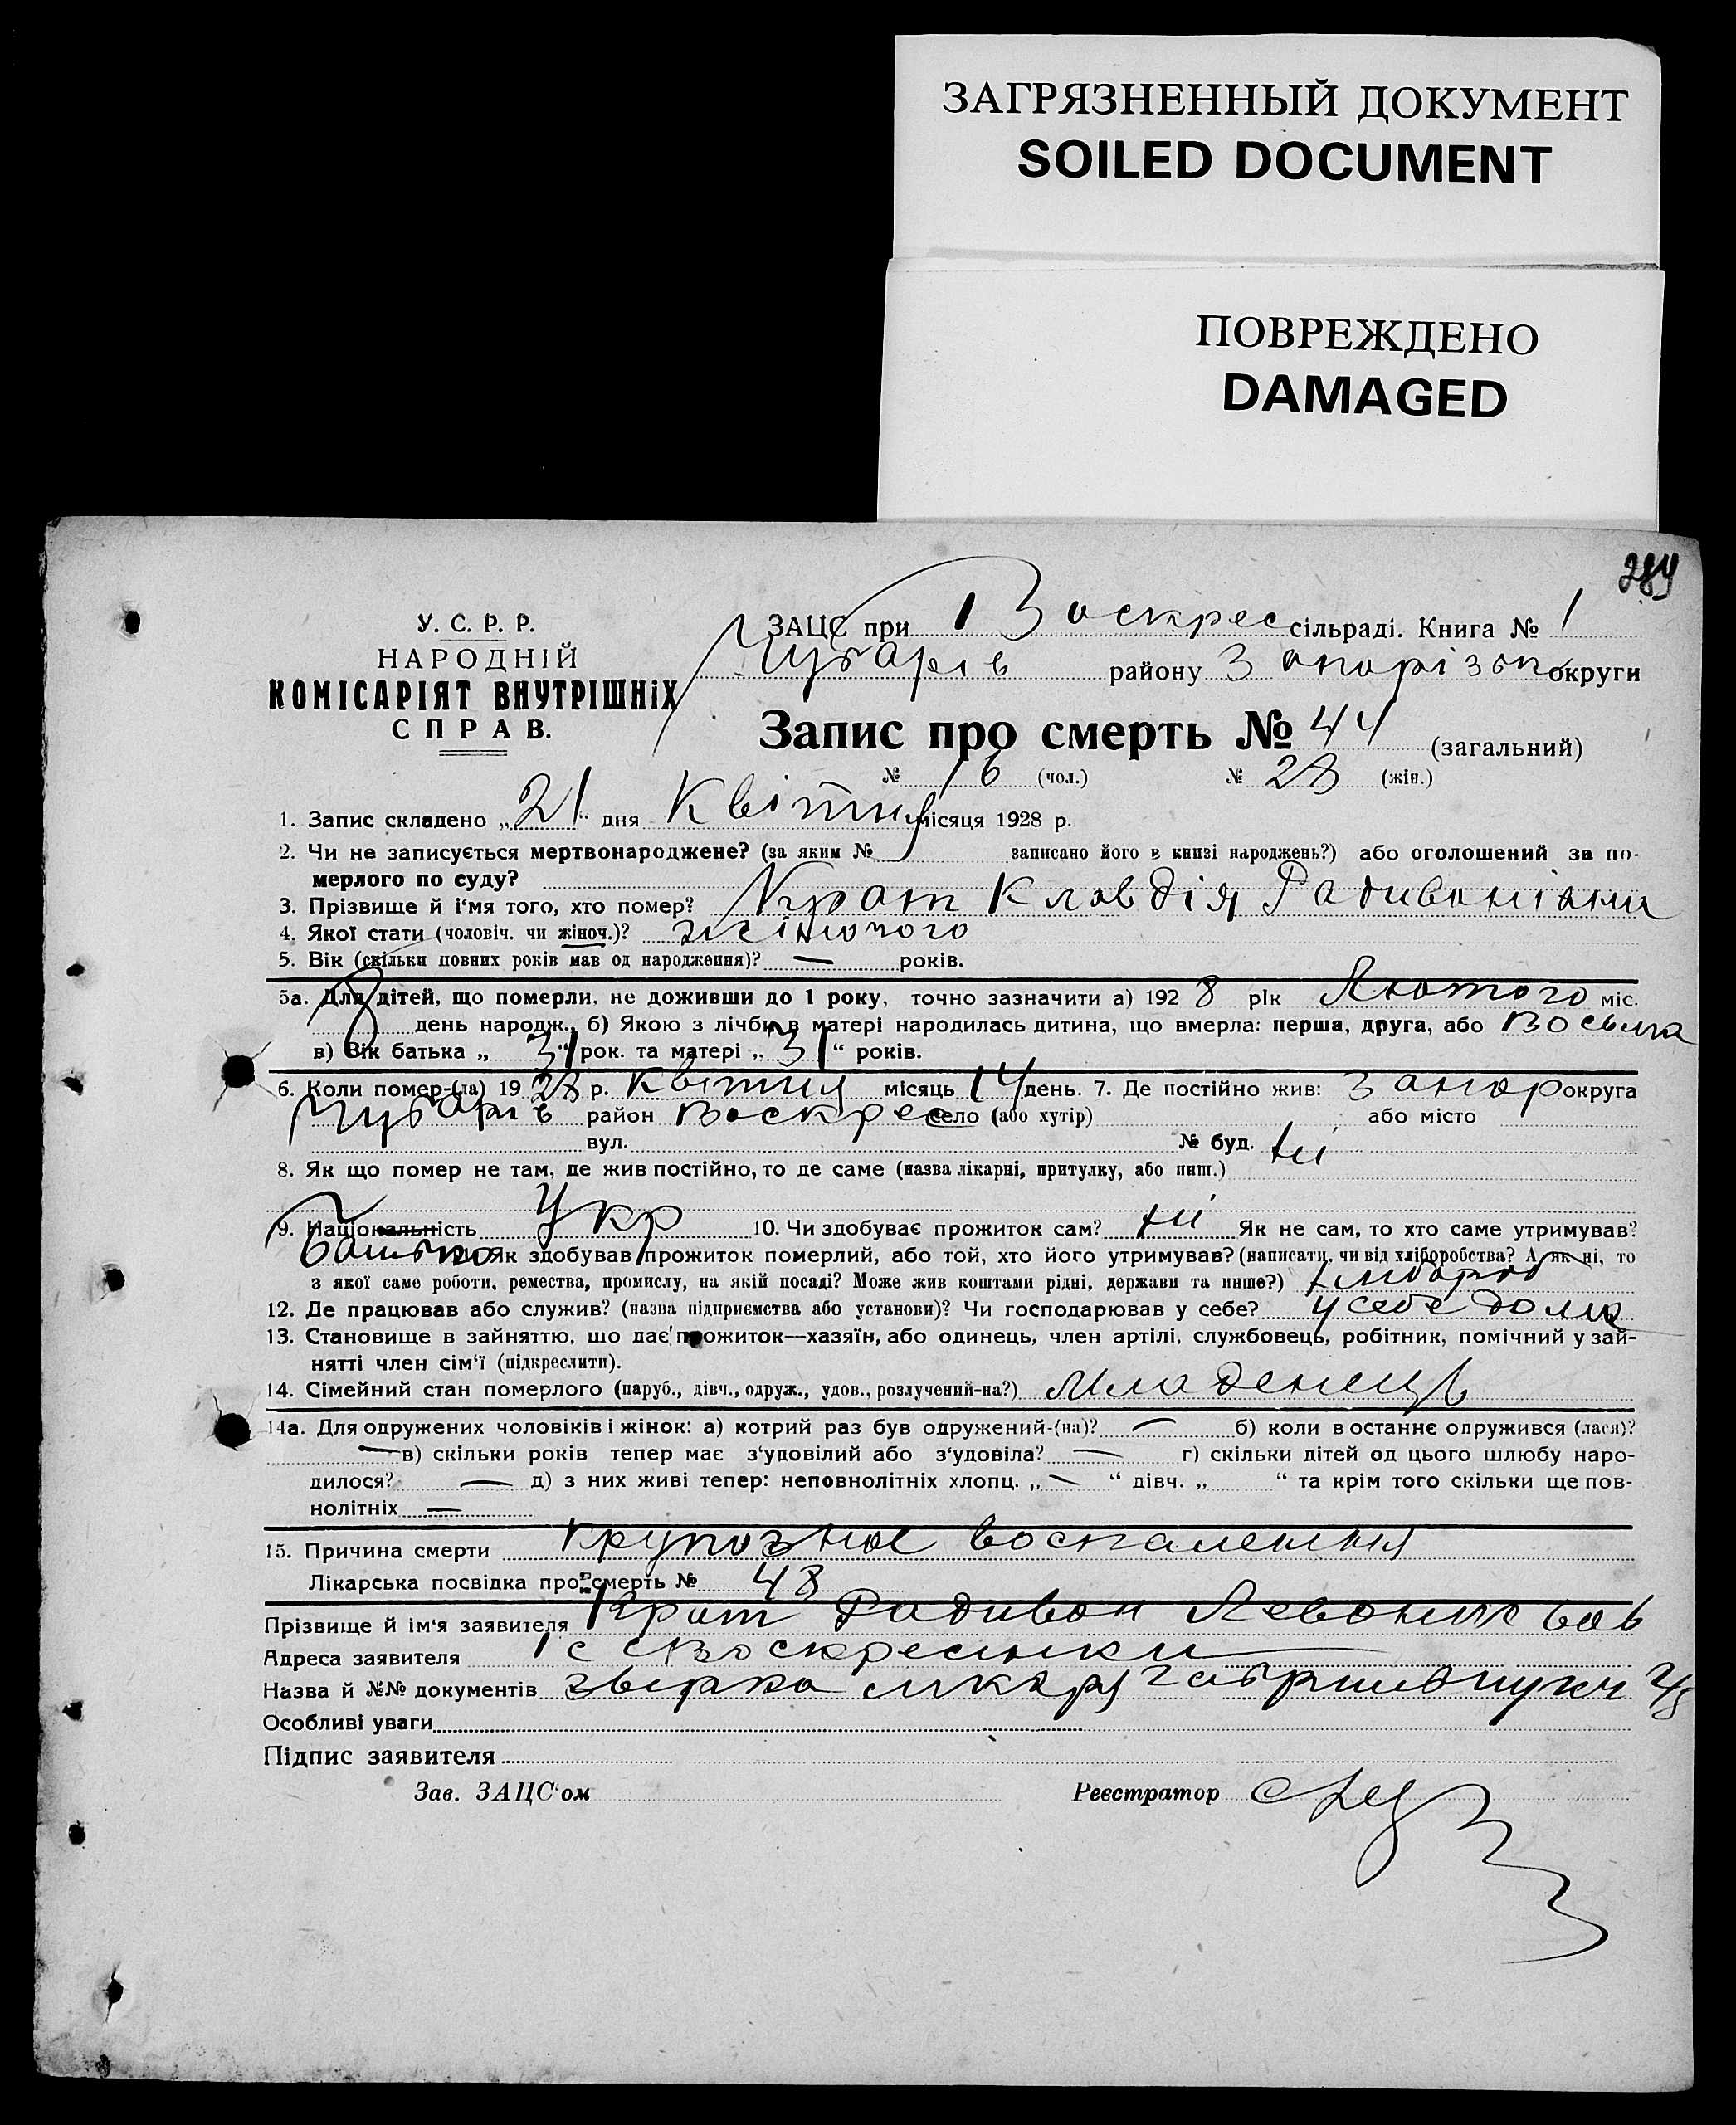 ЗАГРЯЗНЕННЫЙ ДОКУМЕНТ
SOILED DOCUMENT
ПОВРЕЖДЕНО
DAMAGED
284
У. С. Р. Р.
НАРОДНІЙ
КОМІСАРІЯТ ВНУТРІШНіХ
СПРАВ.
ЗАЦС при Воскрес сільраді. Книга № 1
Чубарів району Запорізьк округи
Запис про смерть № 44 (загальний)
№ 16 (чол.) № 28 (жін.)
1. Запис складено „21“ дня Квітня місяця 1928 р.
2. Чи не записується мертвонароджене? (за яким № записано його в книзі народжень?) або оголошений за по-
мерлого по суду?
3. Прізвище й і‘мя того, хто помер? Крат Клавдія Радивонівни
4. Якої стати (чоловіч. чи жіноч.)? жіночого
5. Вік (скільки повних років мав од народження)? — років.
5а. Для дітей, що померли, не доживши до 1 року, точно зазначити а) 1928 рік Лютого міс.
8 день народж., б) Якою з лічби в матері народилась дитина, що вмерла: перша, друга, або восьма
в) Вік батька „31“ рок. та матері „31“ років.
6. Коли помер-(ла) 1928 р. Квітня місяць 14 день. 7. Де постійно жив: Запор округа
Чубарів район Воскрес село (або хутір) або місто
вул. № буд. ні
8. Як що помер не там, де жив постійно, то де саме (назва лікарні, притулку, або инш.)
9. Національність Укр 10. Чи здобуває прожиток сам? ні Як не сам, то хто саме утримував?
Батько Як здобував прожиток померлий, або той, хто його утримував? (написати, чи від хліборобства? А як ні, то
з якої саме роботи, ремества, промислу, на якій посаді? Може жив коштами рідні, держави та инше?) хлібороб
12. Де працював або служив? (назва підприємства або установи)? Чи господарював у себе? у себе дома
13. Становище в зайняттю, що дає прожиток—хазяїн, або одинець, член артілі, службовець, робітник, помічний у зай-
нятті член сім‘ї (підкреслити).
14. Сімейний стан померлого (паруб., дівч., одруж., удов., розлучений-на?) Младенець
14а. Для одружених чоловіків і жінок: а) котрий раз був одружений-(на)? — б) коли востаннє одружився (лася)?
— в) скільки років тепер має з‘удовілий або з‘удовіла? — г) скільки дітей од цього шлюбу наро-
дилося? — д) з них живі тепер: неповнолітніх хлопц. „—“ дівч. „ “ та крім того скільки ще пов-
нолітніх —
15. Причина смерти Крупозное воспаления
Лікарська посвідка про смерть № 48
Прізвище й ім‘я заявителя Крат Радивон Левонтьєв
Адреса заявителя с Воскресенки
Назва й №№ документів
Особливі уваги
Підпис заявителя
Зав. ЗАЦС‘ом Реєстратор